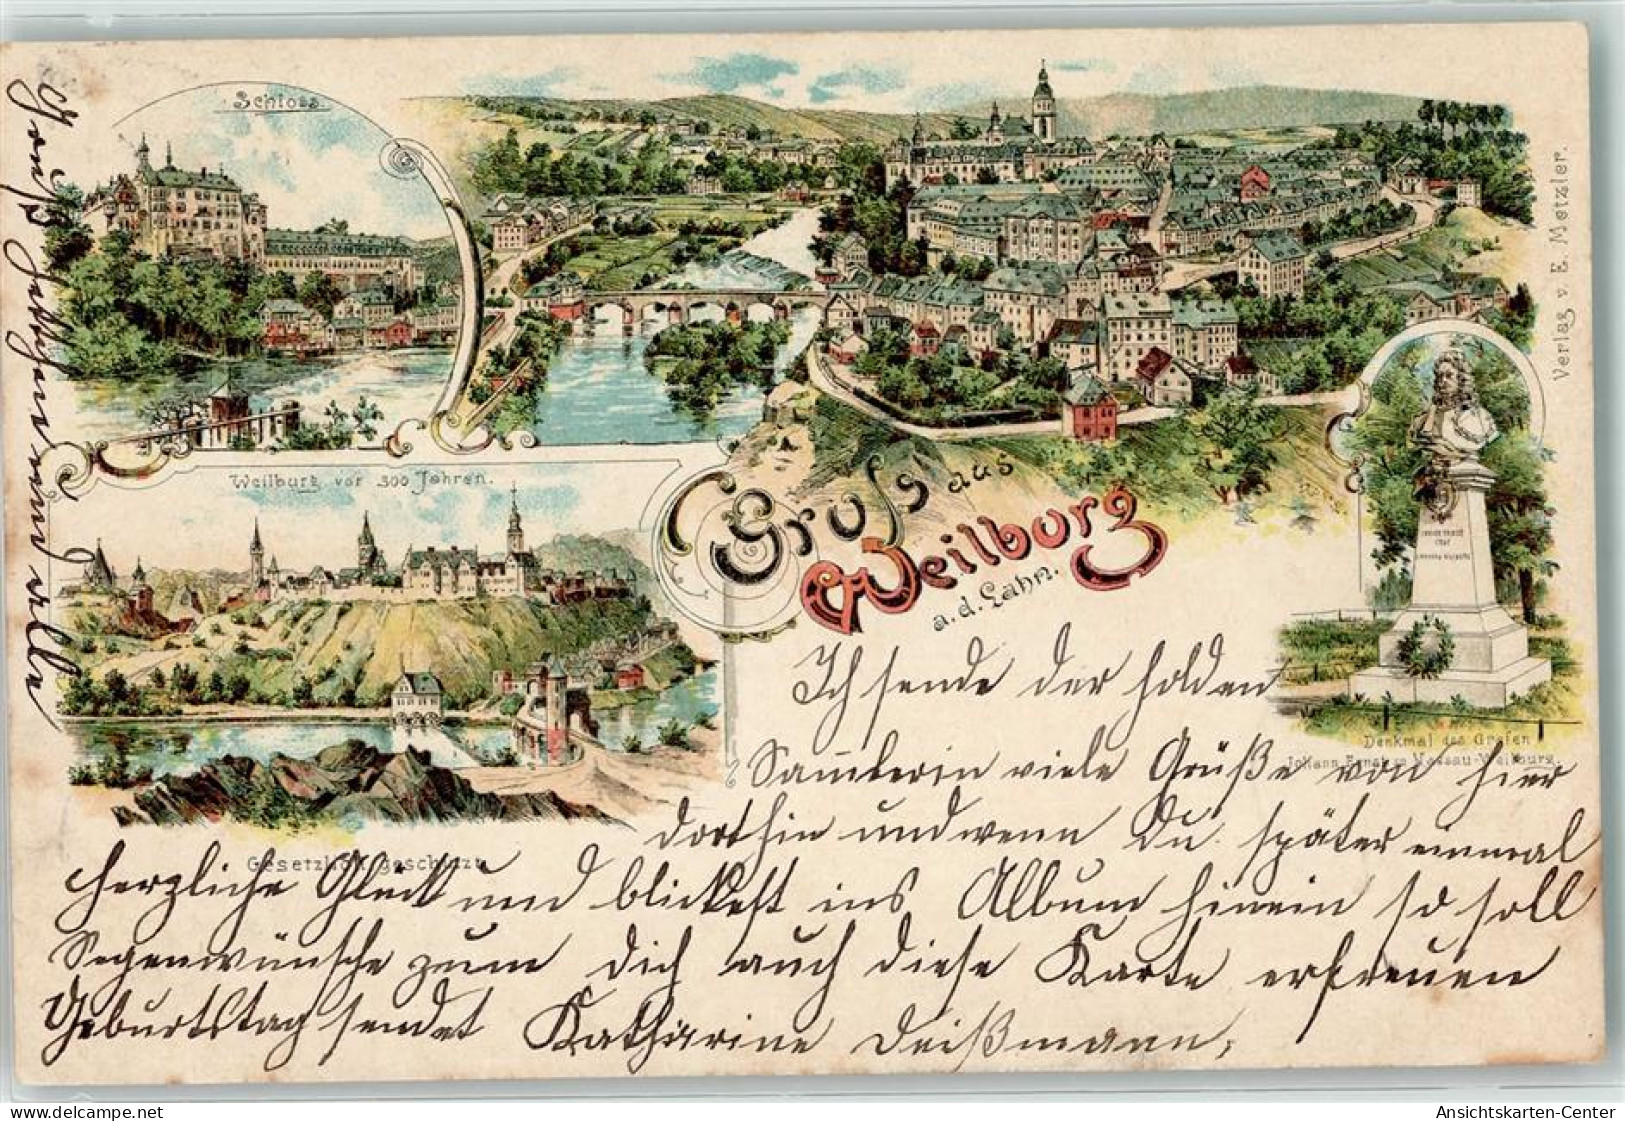 Schloss.
Verlag v. E. Metzler.
Weilburg vor 300 Jahren.
Gruss aus
Weilburg
a. d. Lahn.
Denkmal des Grafen
Johann Ernst v. Nassau-Weilburg.
Gesetzlich geschützt.
Ich sende der holden
Samlerin viele Grüße von hier
dorthin und wenn Du später einmal
und blickest ins Album hinein so soll
dich auch diese Karte erfreuen
Katharine Deißmann,
herzliche Glück
Segenwünsche zum
Geburtstag sendet
Ansichtskarten-Center